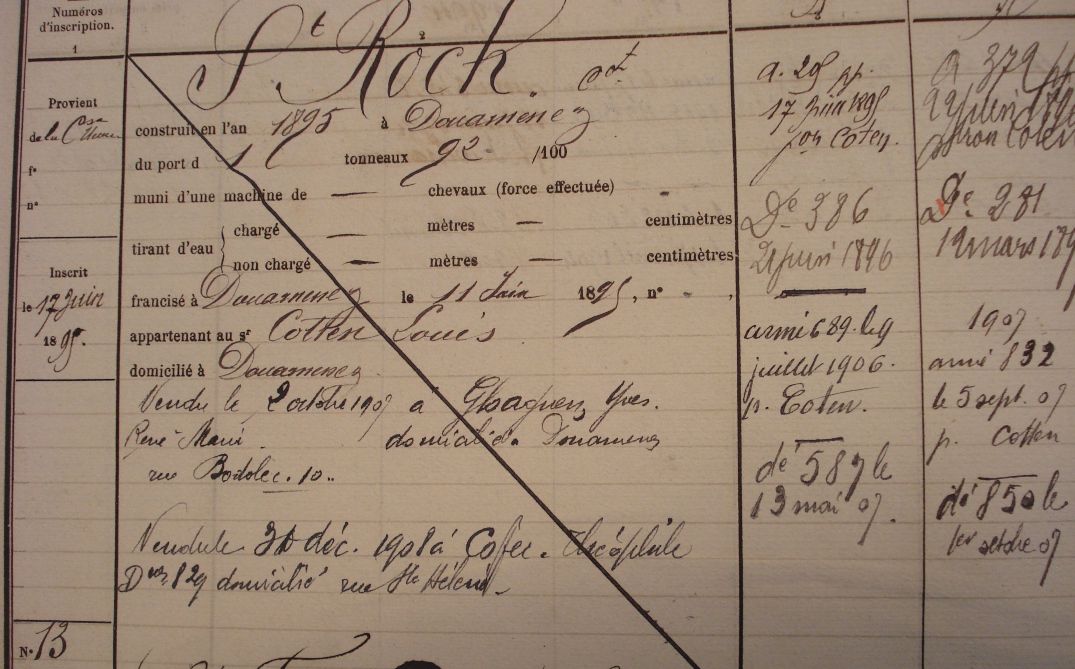 Numéros
d'inscription.
1
2
St Roch. cot
Provient
de la Cse
f°
n°
construit en l'an 1895 à Douarnenez
du port d 1 tonneaux 92 /100
muni d'une machine de — chevaux (force effectuée) -
tirant d'eau
chargé — mètres — centimètres
non chargé — mètres — centimètres
Inscrit
le 17 Juin
1895.
francisé à Douarnenez le 11 Juin 1895, n° - ,
appartenant au sr Cotten Louis
domicilié à Douarnenez
Vendu le 2 octobre 1907 a Yves.
René Marie domicilié Douarnenez
rue Bodolec. 10..
Vendu le 31 déc. 1908 à Théophile
Dnez 829 domicilié rue Ste Hélène.
N° 13
a. 20 pp.
17 juin 1895
pon Coten.
Dé 386
juin 1896
armé 689. le 9
juillet 1906.
p. Coten.
dé 587 le
13 mai 07.
a 379
juin 1896
patron Coten
Dé. 281
19 mars 189
1907
armé 832
le 5 sept. 07
p. Cotten
dé 850 le
1er octbre 07